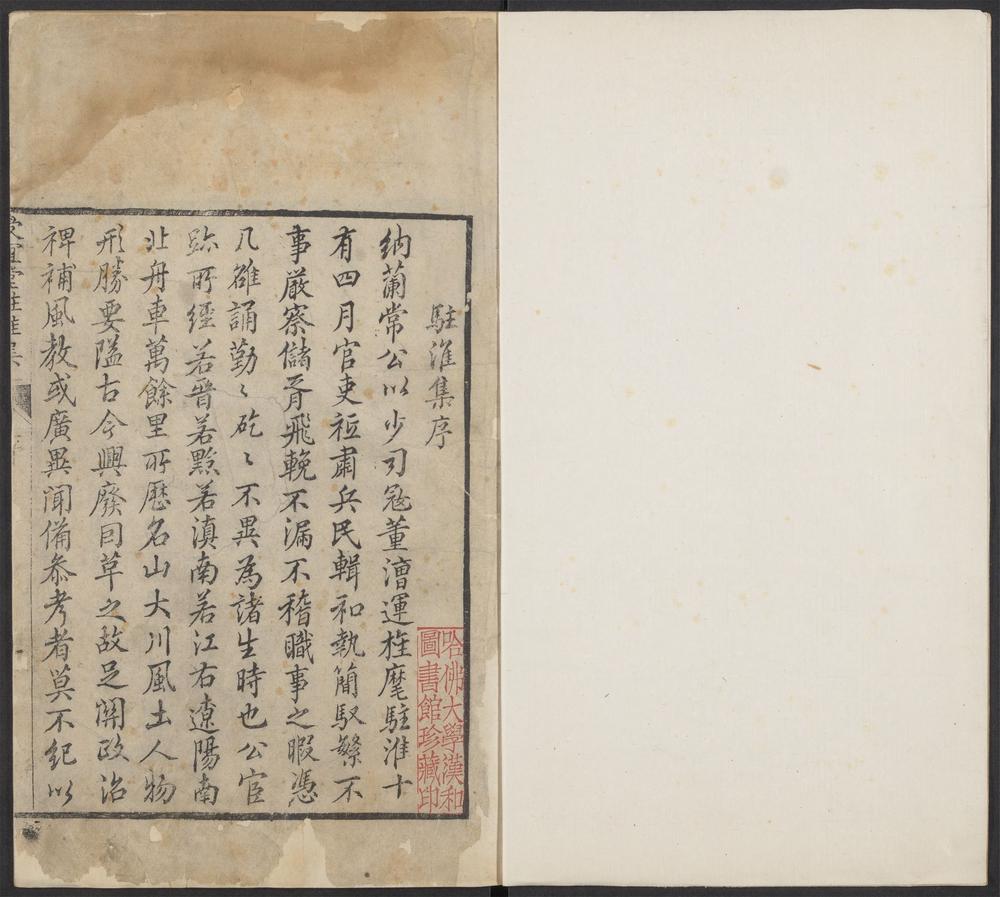 駐淮集序
納蘭常公以少司寇董漕運旌麾駐淮十
有四月官吏祗肅兵民輯和執簡馭繁不
事嚴察儲胥飛輓不漏不稽職事之暇憑
几雒誦勤〻矻〻不異為諸生時也公宦
跡所經若晉若黔若滇南若江右遼陽南
北舟車萬餘里所歷名山大川風土人物
形勝要隘古今興廢因革之故足關政治
裨補風教或廣異聞備參考者莫不紀以
受宜堂駐淮集
序
哈佛大學漢和
圖書館珍藏印